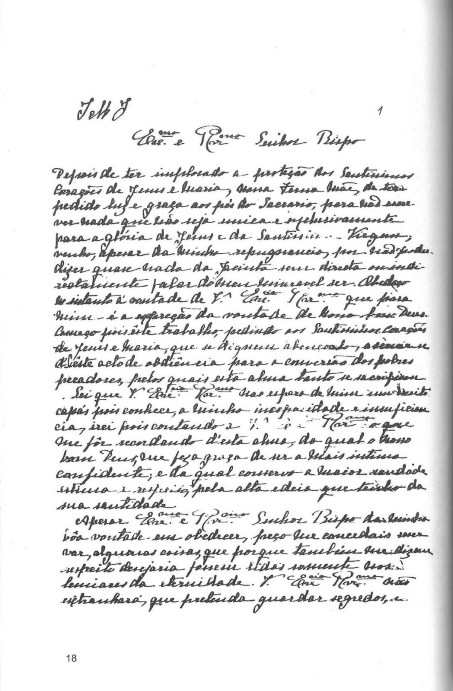 J M J
1
Exc.mo e Rev.mo Senhor Bispo
Depois de ter implorado a proteção dos Santissimos
Corações de Jesus e Maria, nossa terna Mãe, de ter
pedido luz e graça aos pés do Sacrario, para não escre-
ver nada que não seja unica e exclusivamente
para a glória de Jesus e da Santissima Virgem,
venho, apesar da minha repugnancia, por não poder
dizer quasi nada da Jacinta sem directa ou indi-
rectamente falar do meu miseravel ser. Obedeço
no entanto á vontade de V.ª Exc.ia Rev.ma que para
mim é a expressão da vontade de nosso bom Deus.
Começo pois este trabalho, pedindo aos Santissimos corações
de Jesus e Maria, que se dignem abençoa-lo, e
d'este acto de obdiência para a conversão dos pobres
pecadores, pelos quais esta alma tanto se sacrificou.
Sei que V.ª Exc.ia Rev.ma não espera de mim um escrito
capás pois conhece, a minha incapacidade e insuficien-
cia, irei pois contando a V.ª Rev.ma o que
me fôr recordando d'esta alma, da qual o nosso
bom Deus, me fez a graça de ser a mais intima
confidente, e da qual conservo a maior saudade
estima e respeito, pela alta edeia que tenho da
sua santidade.
Apesar Exc.mo e Rev.mo Senhor Bispo da minha
bôa vontade em obedecer, peço me concedais reser-
var, algumas coisas, que porque tambem me dizem
respeito desejaria fossem lidas somente nos
lumiares da eternidade. V.ª Exc.ia Rev.ma não
estranhará, que pretenda guardar segredos, e
18